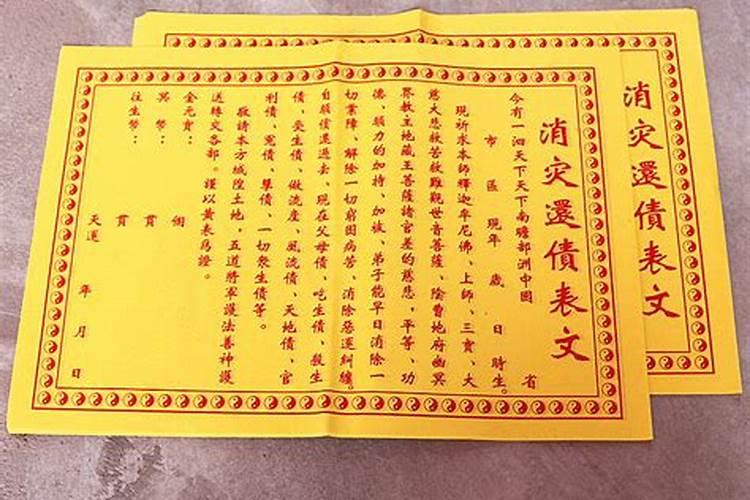 消灾還債表文
今有一泗天下天下南瞻部洲中國 省
市 區 現年 歲 日 時生。
現祈求本師釋迦牟尼佛、上師、三寶、大
慈大悲救苦救難觀世音菩薩、陰曹地府幽冥
界教主地藏王菩薩諸官差的慈悲，平等、功
德、願力的加持、加被、弟子能早日消除一
切業障、解除一切窮困病苦、消除惡運糾纏。
自願償還過去、現在父母債、吃生債、殺生
債、受生債、做流産、風流債、天地債、官
利債、冤債、孽債、一切衆生債等。
敬請本方城隍土地，五道將軍護法善神護
送轉交各部。謹以黄表爲證。
金元寶： 個
冥 幣： 貫
往生幣： 貫
天運 年 月 日
消灾還債表文